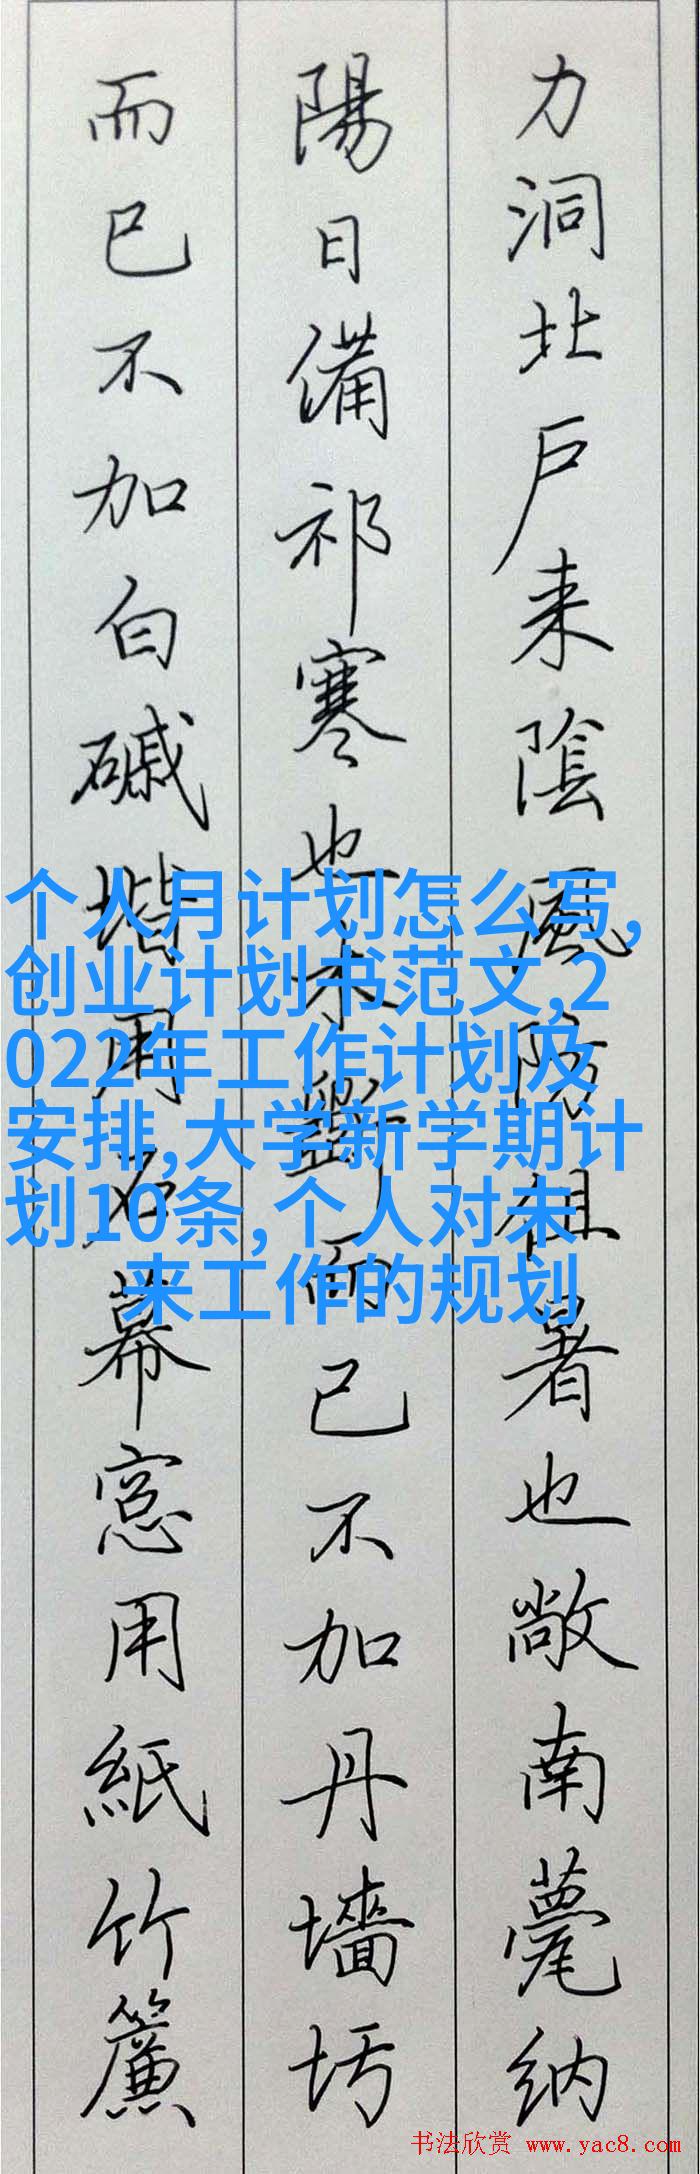 力洞北戶来陰風防徂暑也敞南甍纳
陽日備祁寒也木斲而已不加丹墻圬
而已不加白磩堦用石幕窓用紙竹簾
个人月计划怎么写,
创业计划书范文,2
022年工作计划及
安排,大学新学期计
划10条,个人对未
来工作的规划
书法欣赏 www.yac8.com